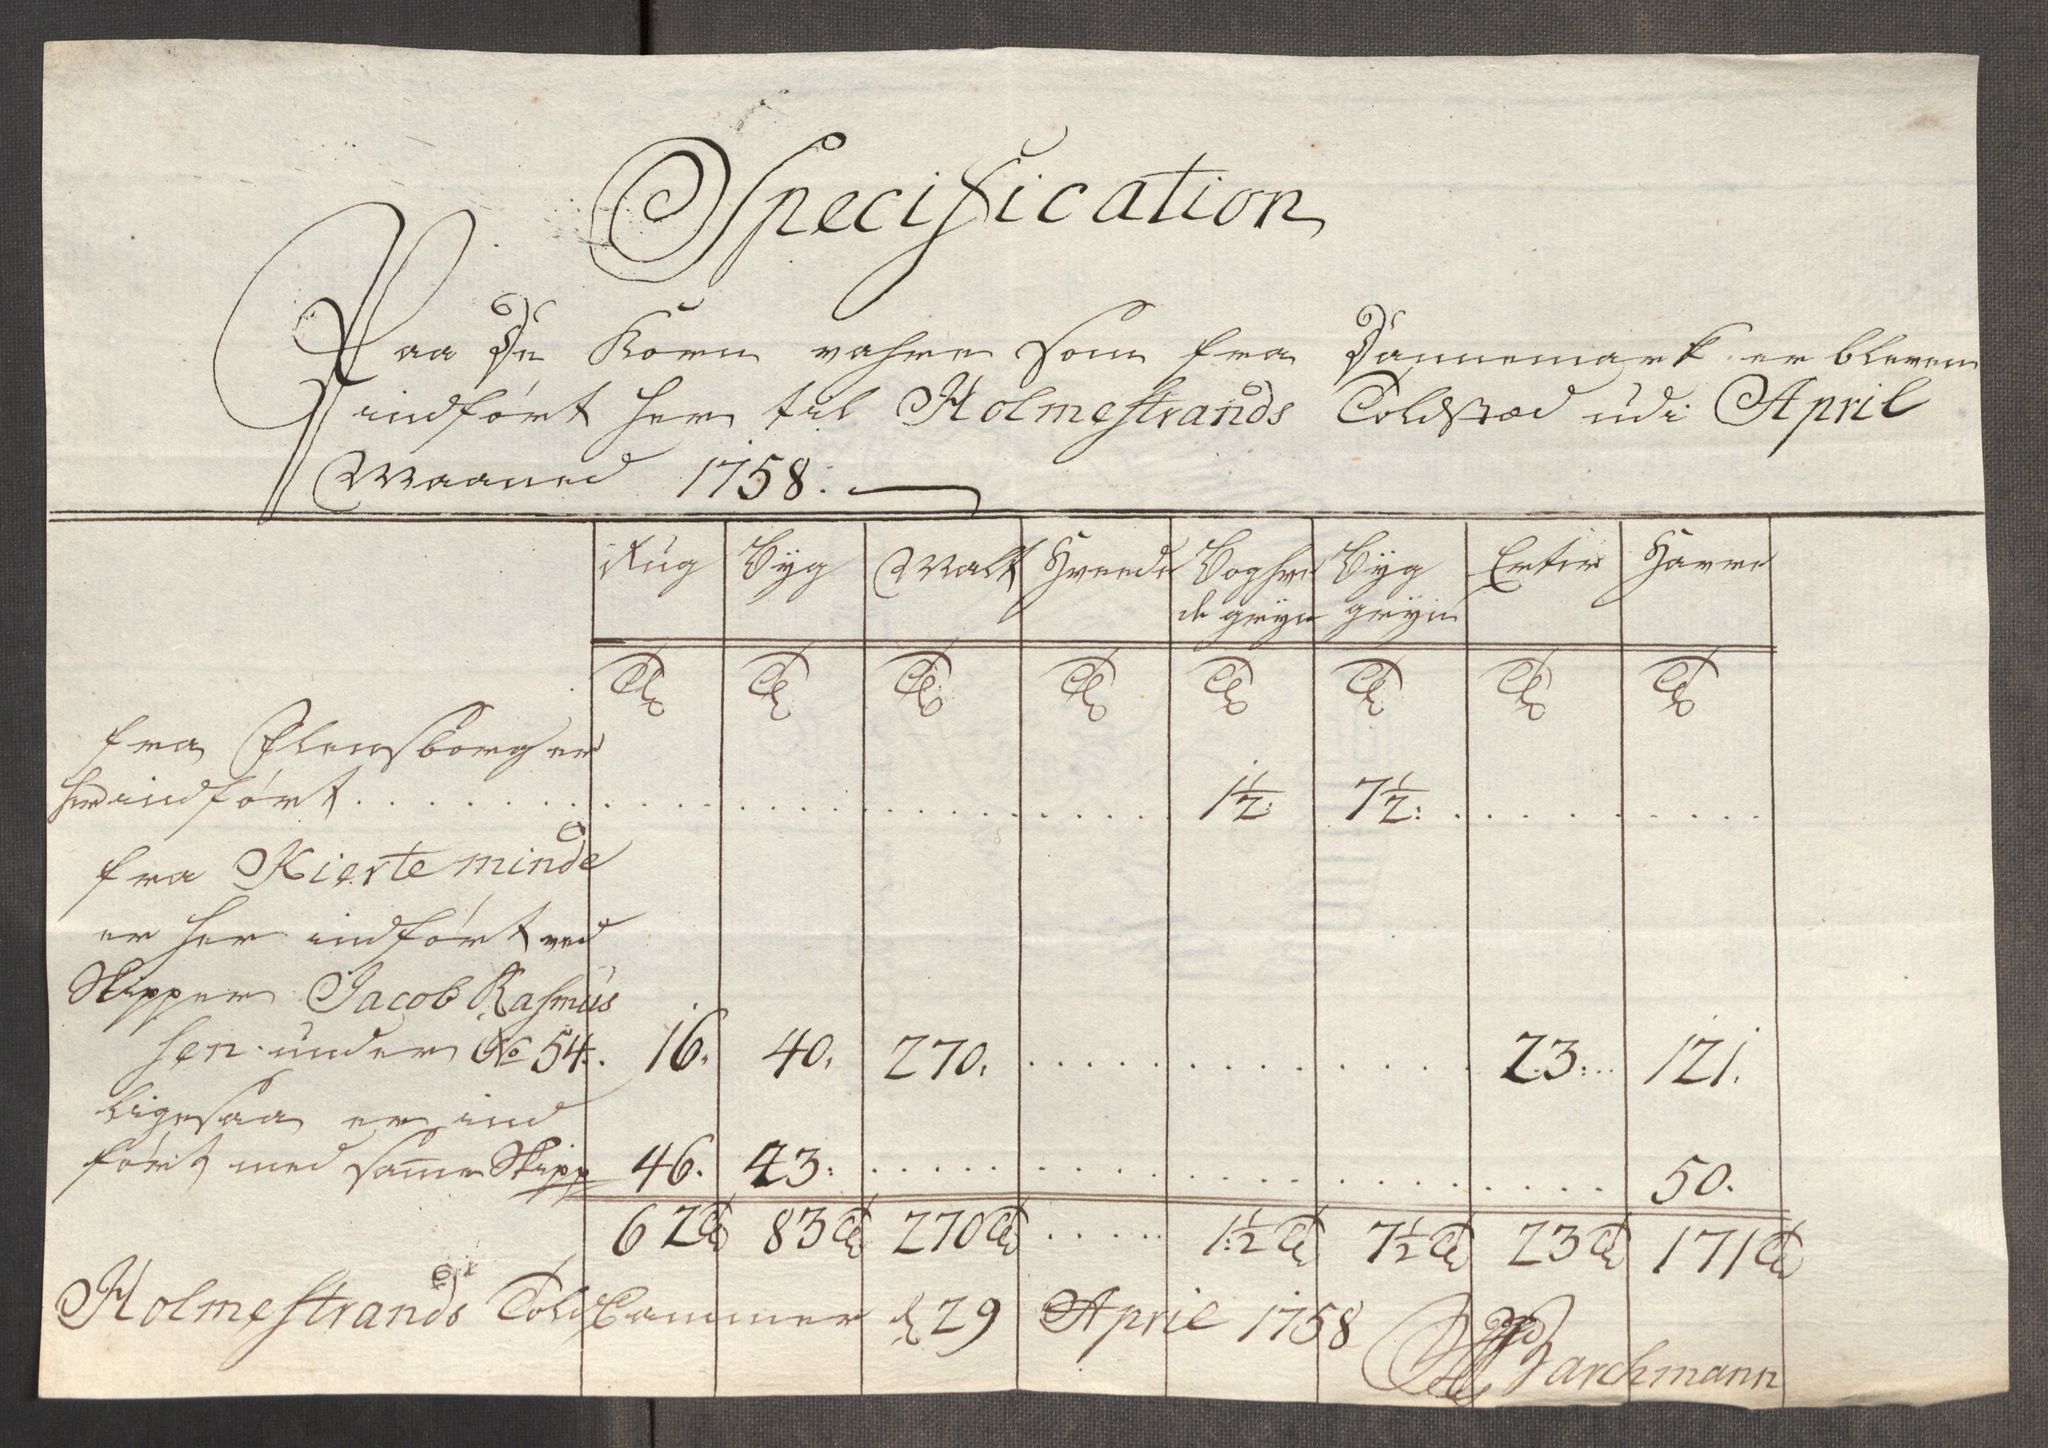 Specification
Paa De Korn vahre som fra Dannemark er bleven
indført her til Holmestrands Toldstæd udi April
Maaned 1758.
Rug Byg Malt Hveede Boghve Byg Erter Havre
de gryn gryn
Tdr Tdr Tdr Tdr Tdr Tdr Tdr Tdr
fra Flensborg er
her indført . . . 1½: 7½:
fra Kierteminde
er her indført ved
Skipper Jacob Rasmus
sen under No 54. 16. 40. 270. 23: 121.
ligesaa er ind
ført med samme Skipp 46. 43: 50.
62 Tdr 83 Tdr 270 Tdr 1½ Tdr 7½ Tdr 23 Tdr 171 Tdr
Holmestrands Told Cammer d 29 April 1758
Barchmann